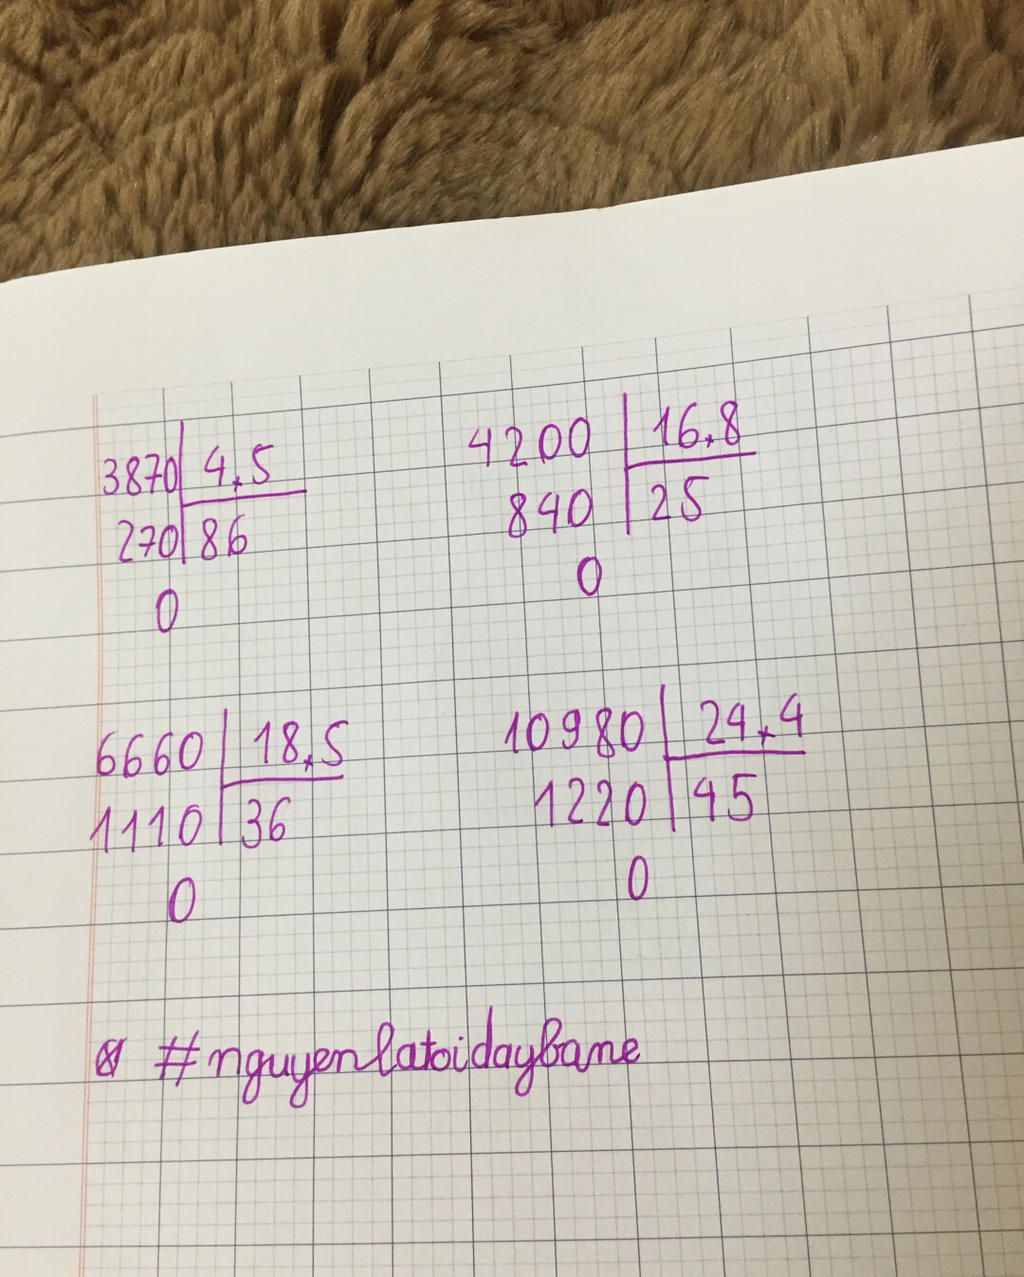 3870 4,5
270 86
0
4200 16,8
840 25
0
6660 18,5
1110 36
0
10980 24,4
1220 45
0
#nguyenlatoidaybame